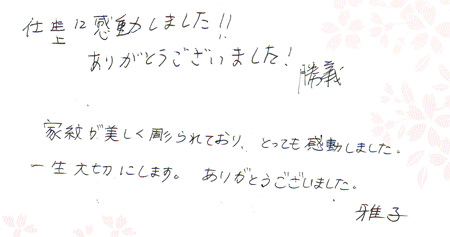 仕上に感動しました!!
ありがとうございました!
勝義
家紋が美しく彫られており、とっても感動しました。
一生大切にします。ありがとうございました。
雅子